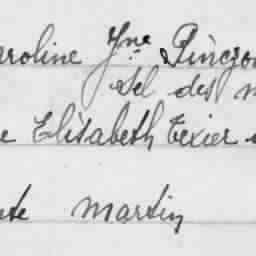 aroline Jne Pinçon
del des
e Elisabeth Texier
te Martin